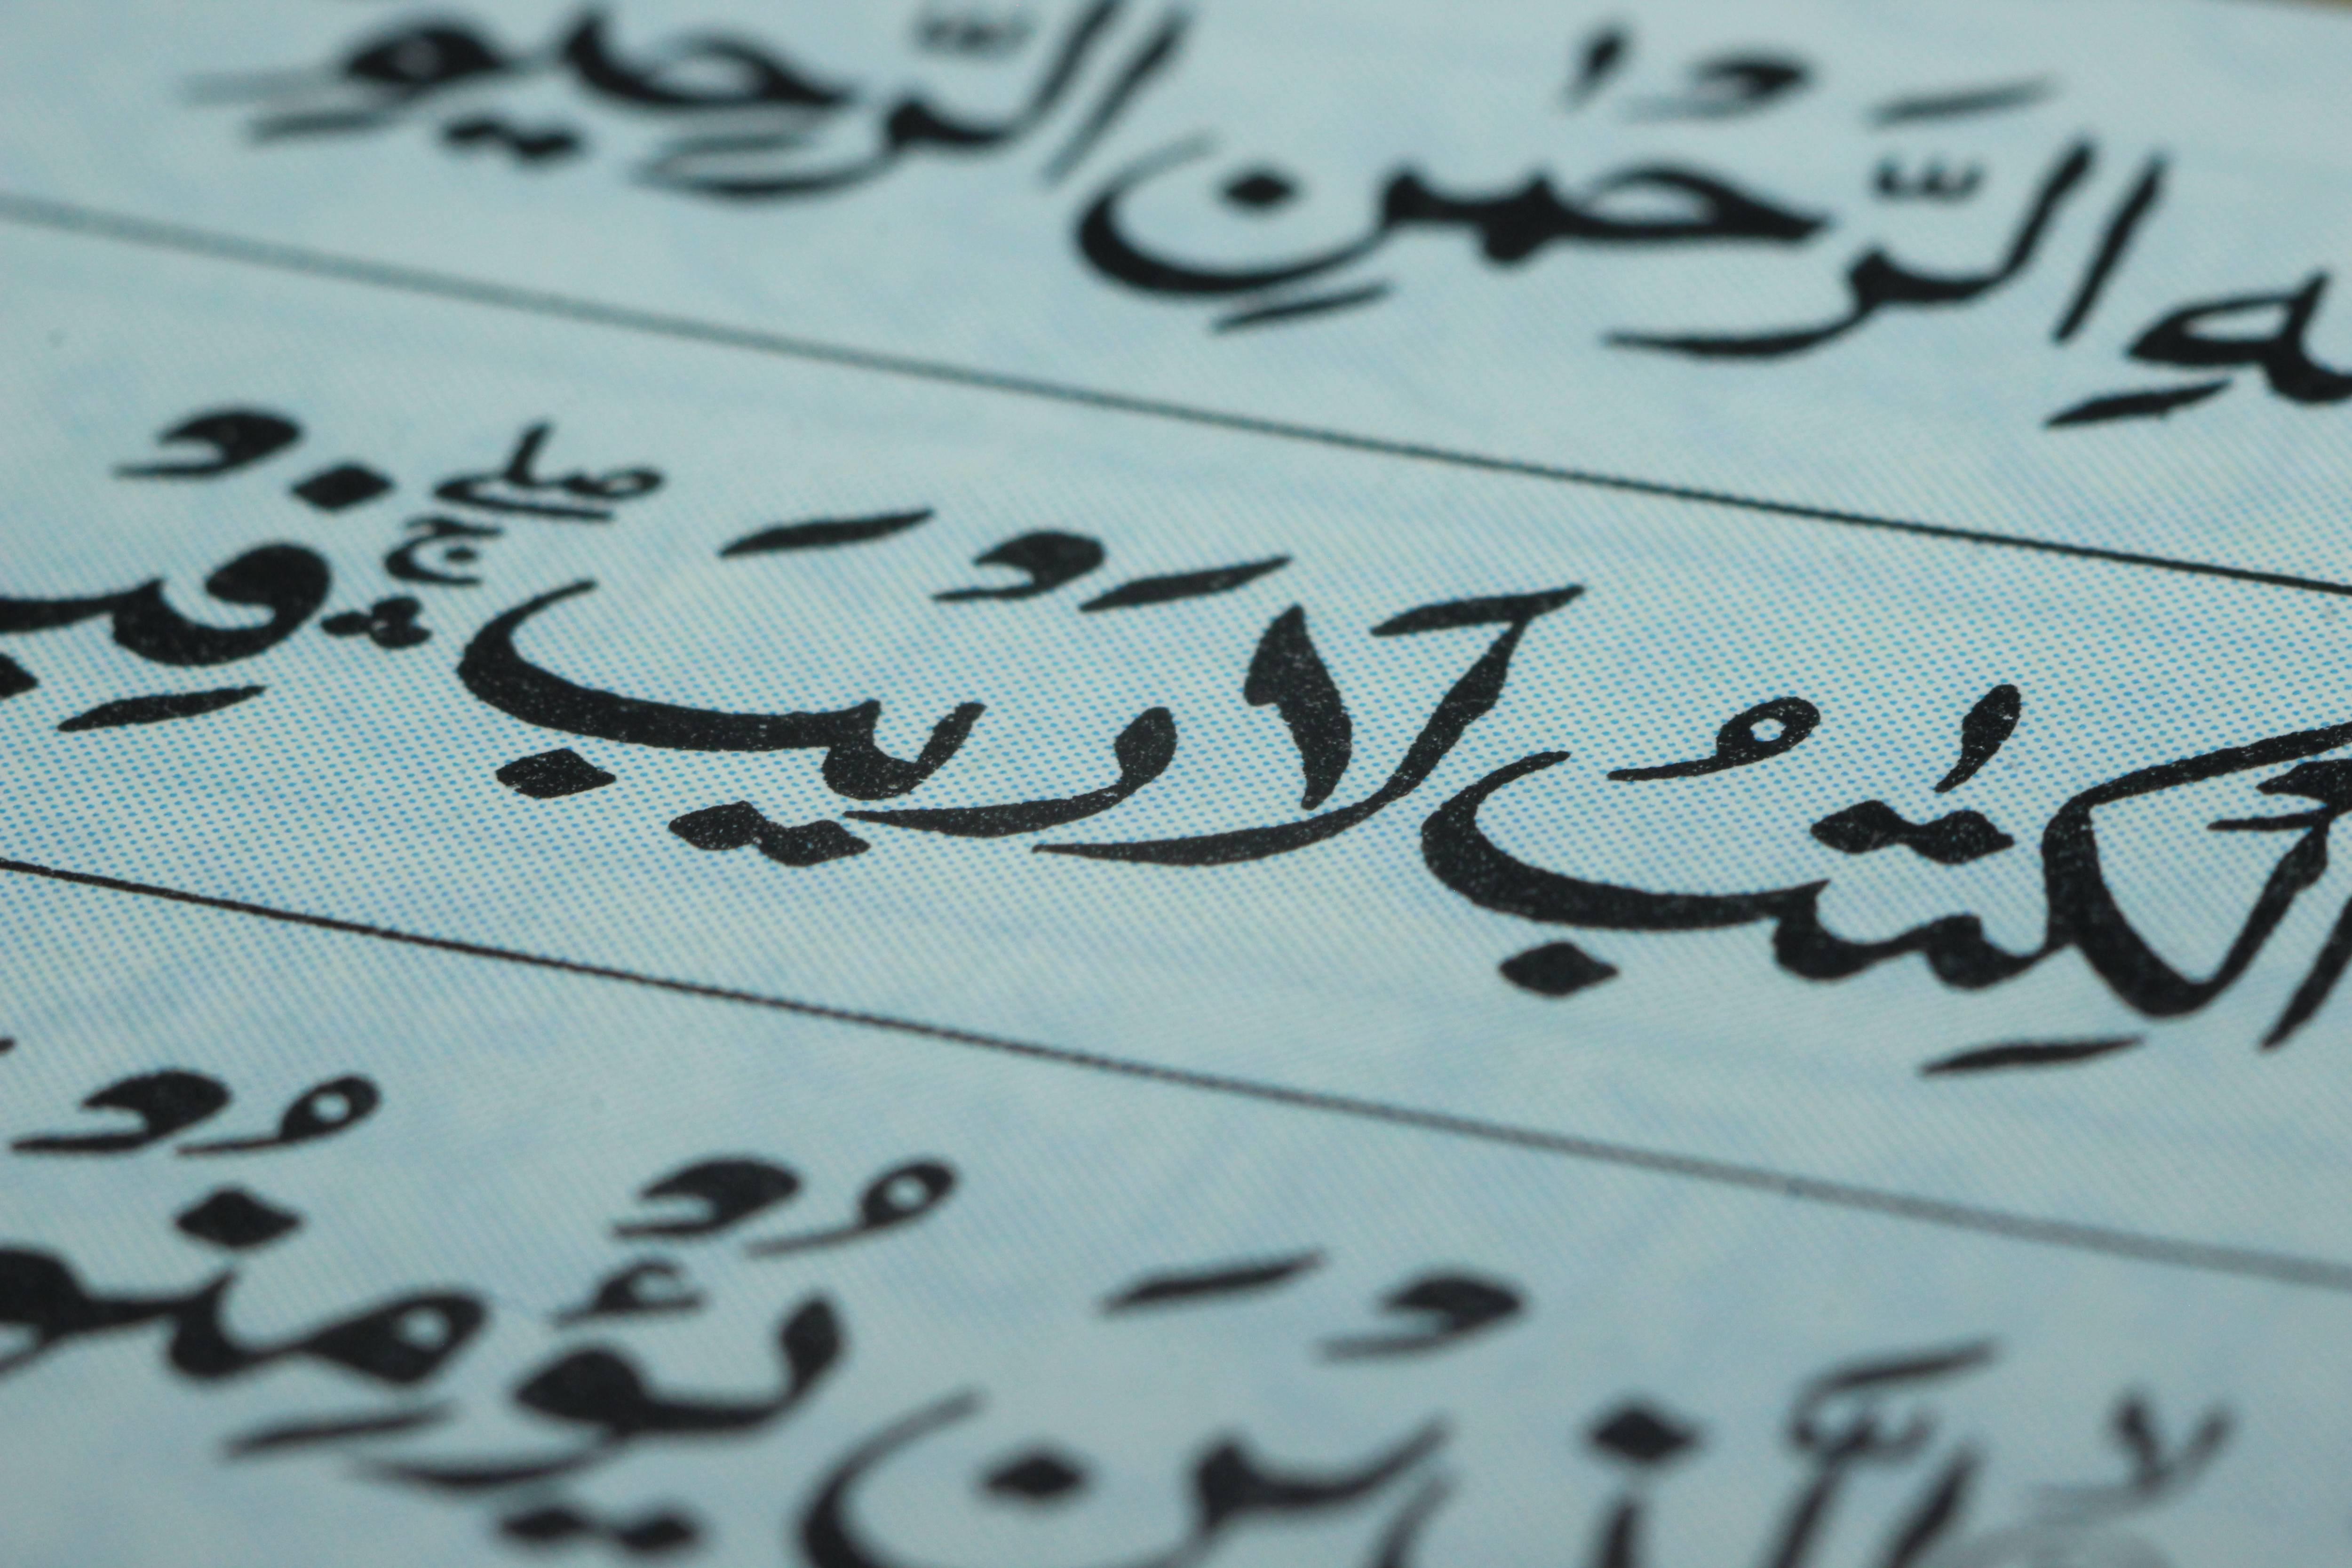 ـهِ الرَّحْمٰنِ الرَّحِيْمِ
الْكِتٰبُ لَا رَيْبَ ۛۖۚ فِيْـ
الَّذِيْنَ يُؤْمِنُوْ